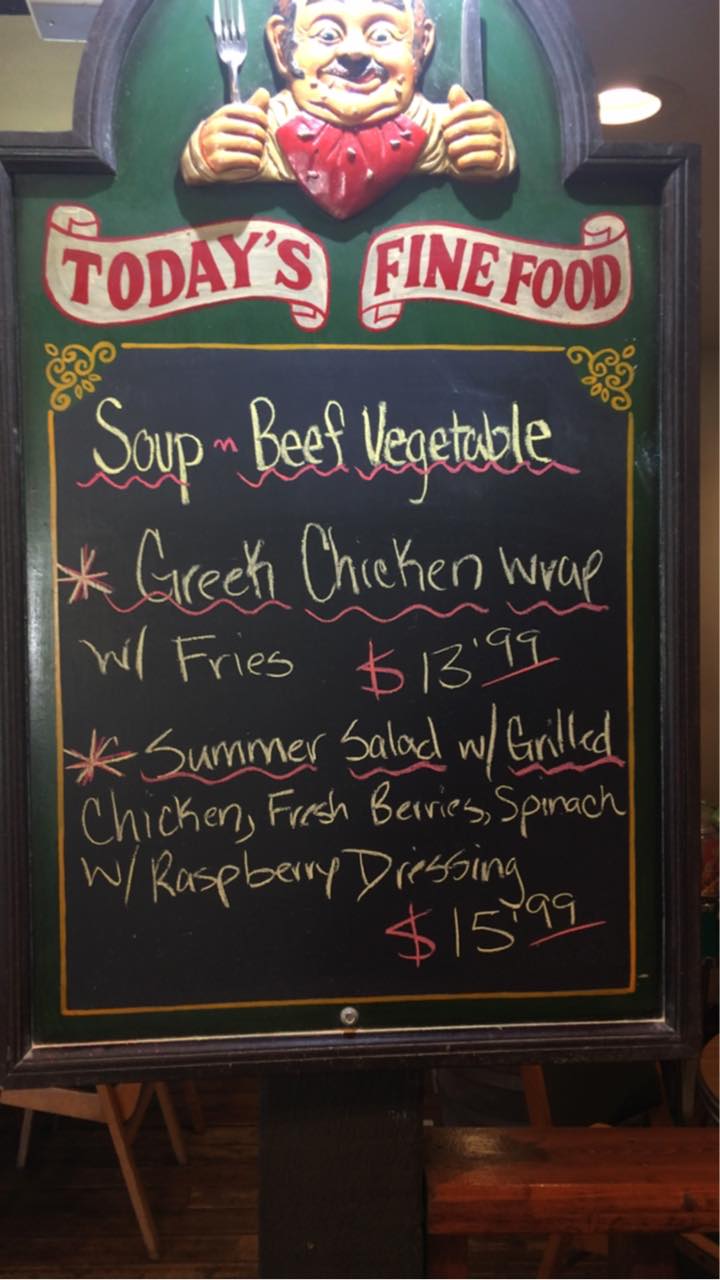 TODAY'S FINE FOOD
Soup ~ Beef Vegetable
* Greek Chicken Wrap
w/ Fries $13.99
* Summer Salad w/ Grilled
Chicken, Fresh Berries, Spinach
w/ Raspberry Dressing
$15.99